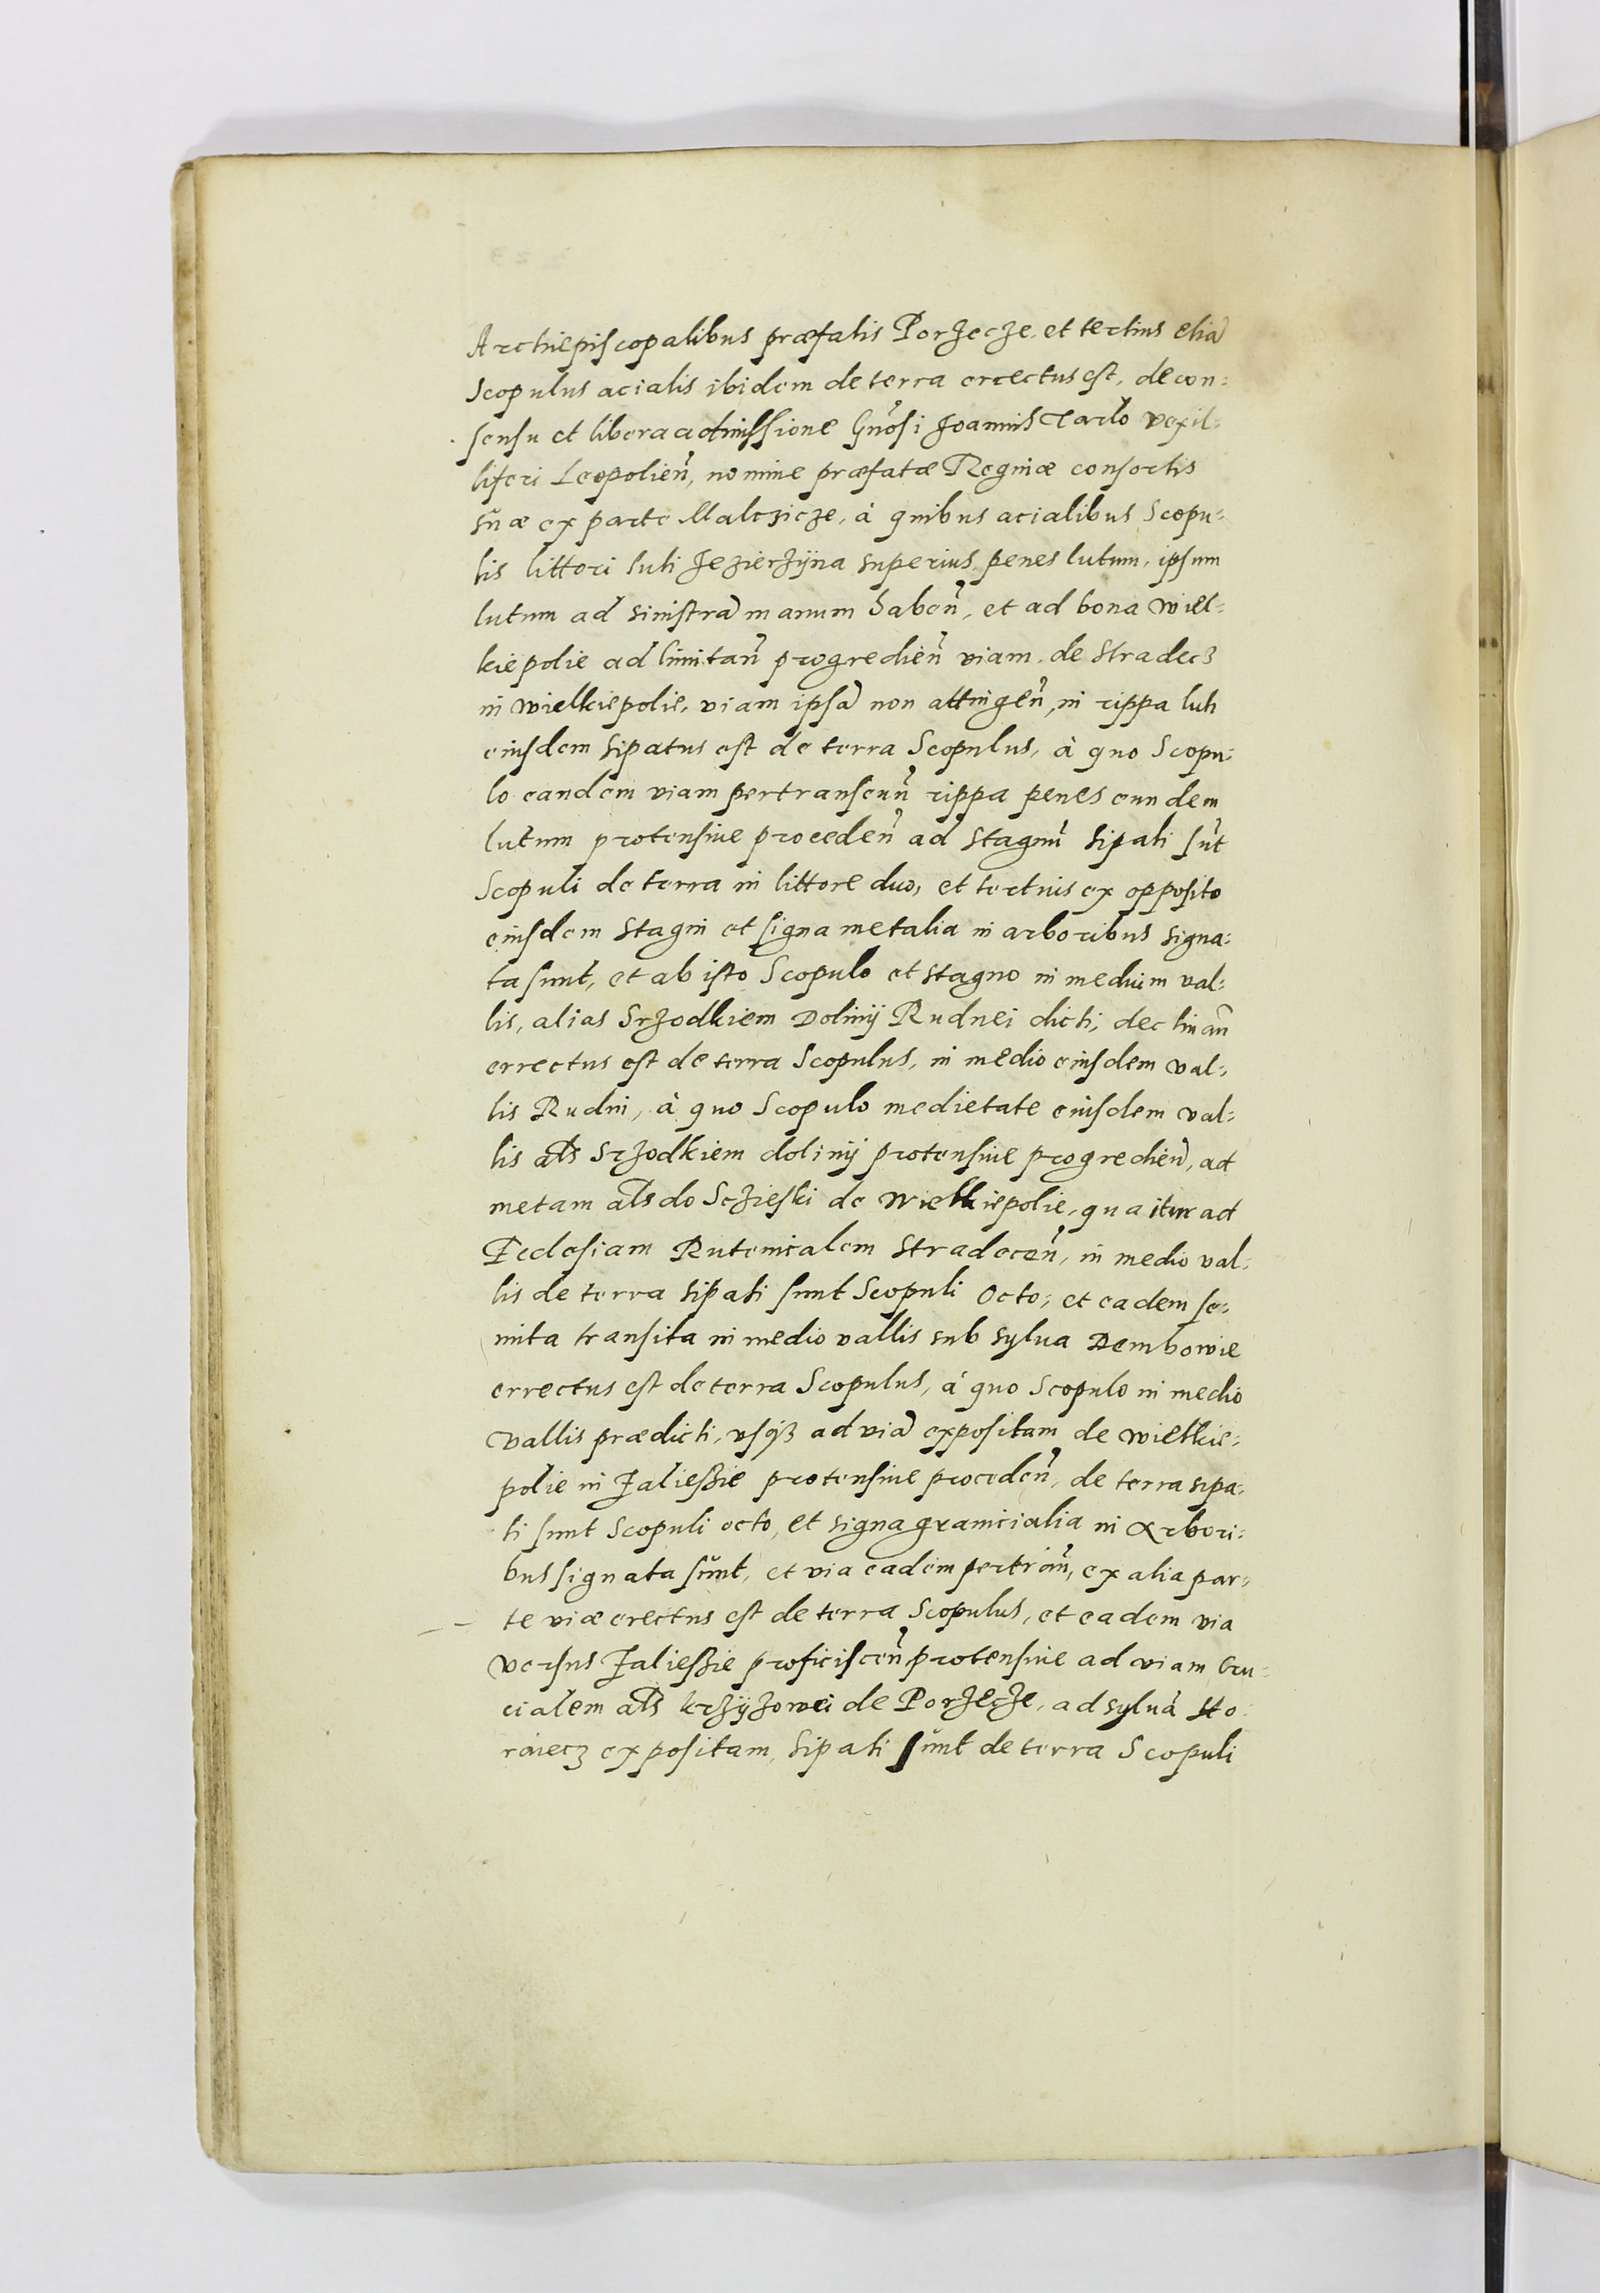 Archiepiscopalibus præfatis Porzecze, et tertius etiã
Scopulus acialis ibidem de terra errectus est, de con:
sensu et libera admissione Gnõsi Joannis Tarlo vexil:
liferi Leopolien̄, nomine præfatæ Reginæ consortis
suæ ex parte Malczicze, à quibus acialibus Scopu:
lis littori luti Jezierzijna superius penes lutum, ipsum
lutum ad sinistrã manum haben̄, et ad bona Wiel:
kiepolie ad limitan̄ progredien̄ viam, de Stradecz
in Wielkiepolie, viam ipsã non attingen̄, in rippa luti
eiusdem sipatus est de terra Scopulus, à quo Scopu:
lo eandem viam pertranseun̄ rippa penes eundem
lutum protensive proceden̄ ad Stagnũ sipati sũt
Scopuli de terra in littore duo, et tertius ex opposito
eiusdem Stagni et signa metalia in arboribus signa:
ta sunt, et ab isto Scopulo et stagno in medium val:
lis, alias Srzodkiem Dolinij Rudnei dicti, declinan̄
errectus est de terra Scopulus, in medio eiusdem val:
lis Rudni, à quo Scopulo medietate eiusdem val:
lis als Srzodkiem dolinij protensive progredien̄, ad
metam als do Sczieski de Wielkiepolie, qua itur ad
Ecclesiam Rutenicalem Stradecen̄, in medio val:
lis de terra sipati sunt Scopuli octo, et eadem se:
mita transita in medio vallis sub sylva Dembowie
errectus est de terra Scopulus, à quo Scopulo in medio
vallis prædicti, usqz ad viã expositam de Wielkie:
polie in Zaliessie protensive proceden̄, de terra sipa:
ti sunt Scopuli octo, et signa granicialia in arbori:
bus signata sũnt, et via eadem pertran̄, ex alia par:
te viæ erectus est de terra Scopulus, et eadem via
versus Zaliessie proficiscen̄ protensive ad viam Cru:
cialem als krzyzowei de Porzecze, ad sylvã Sto:
roniecz expositam, sipati sũnt de terra Scopuli